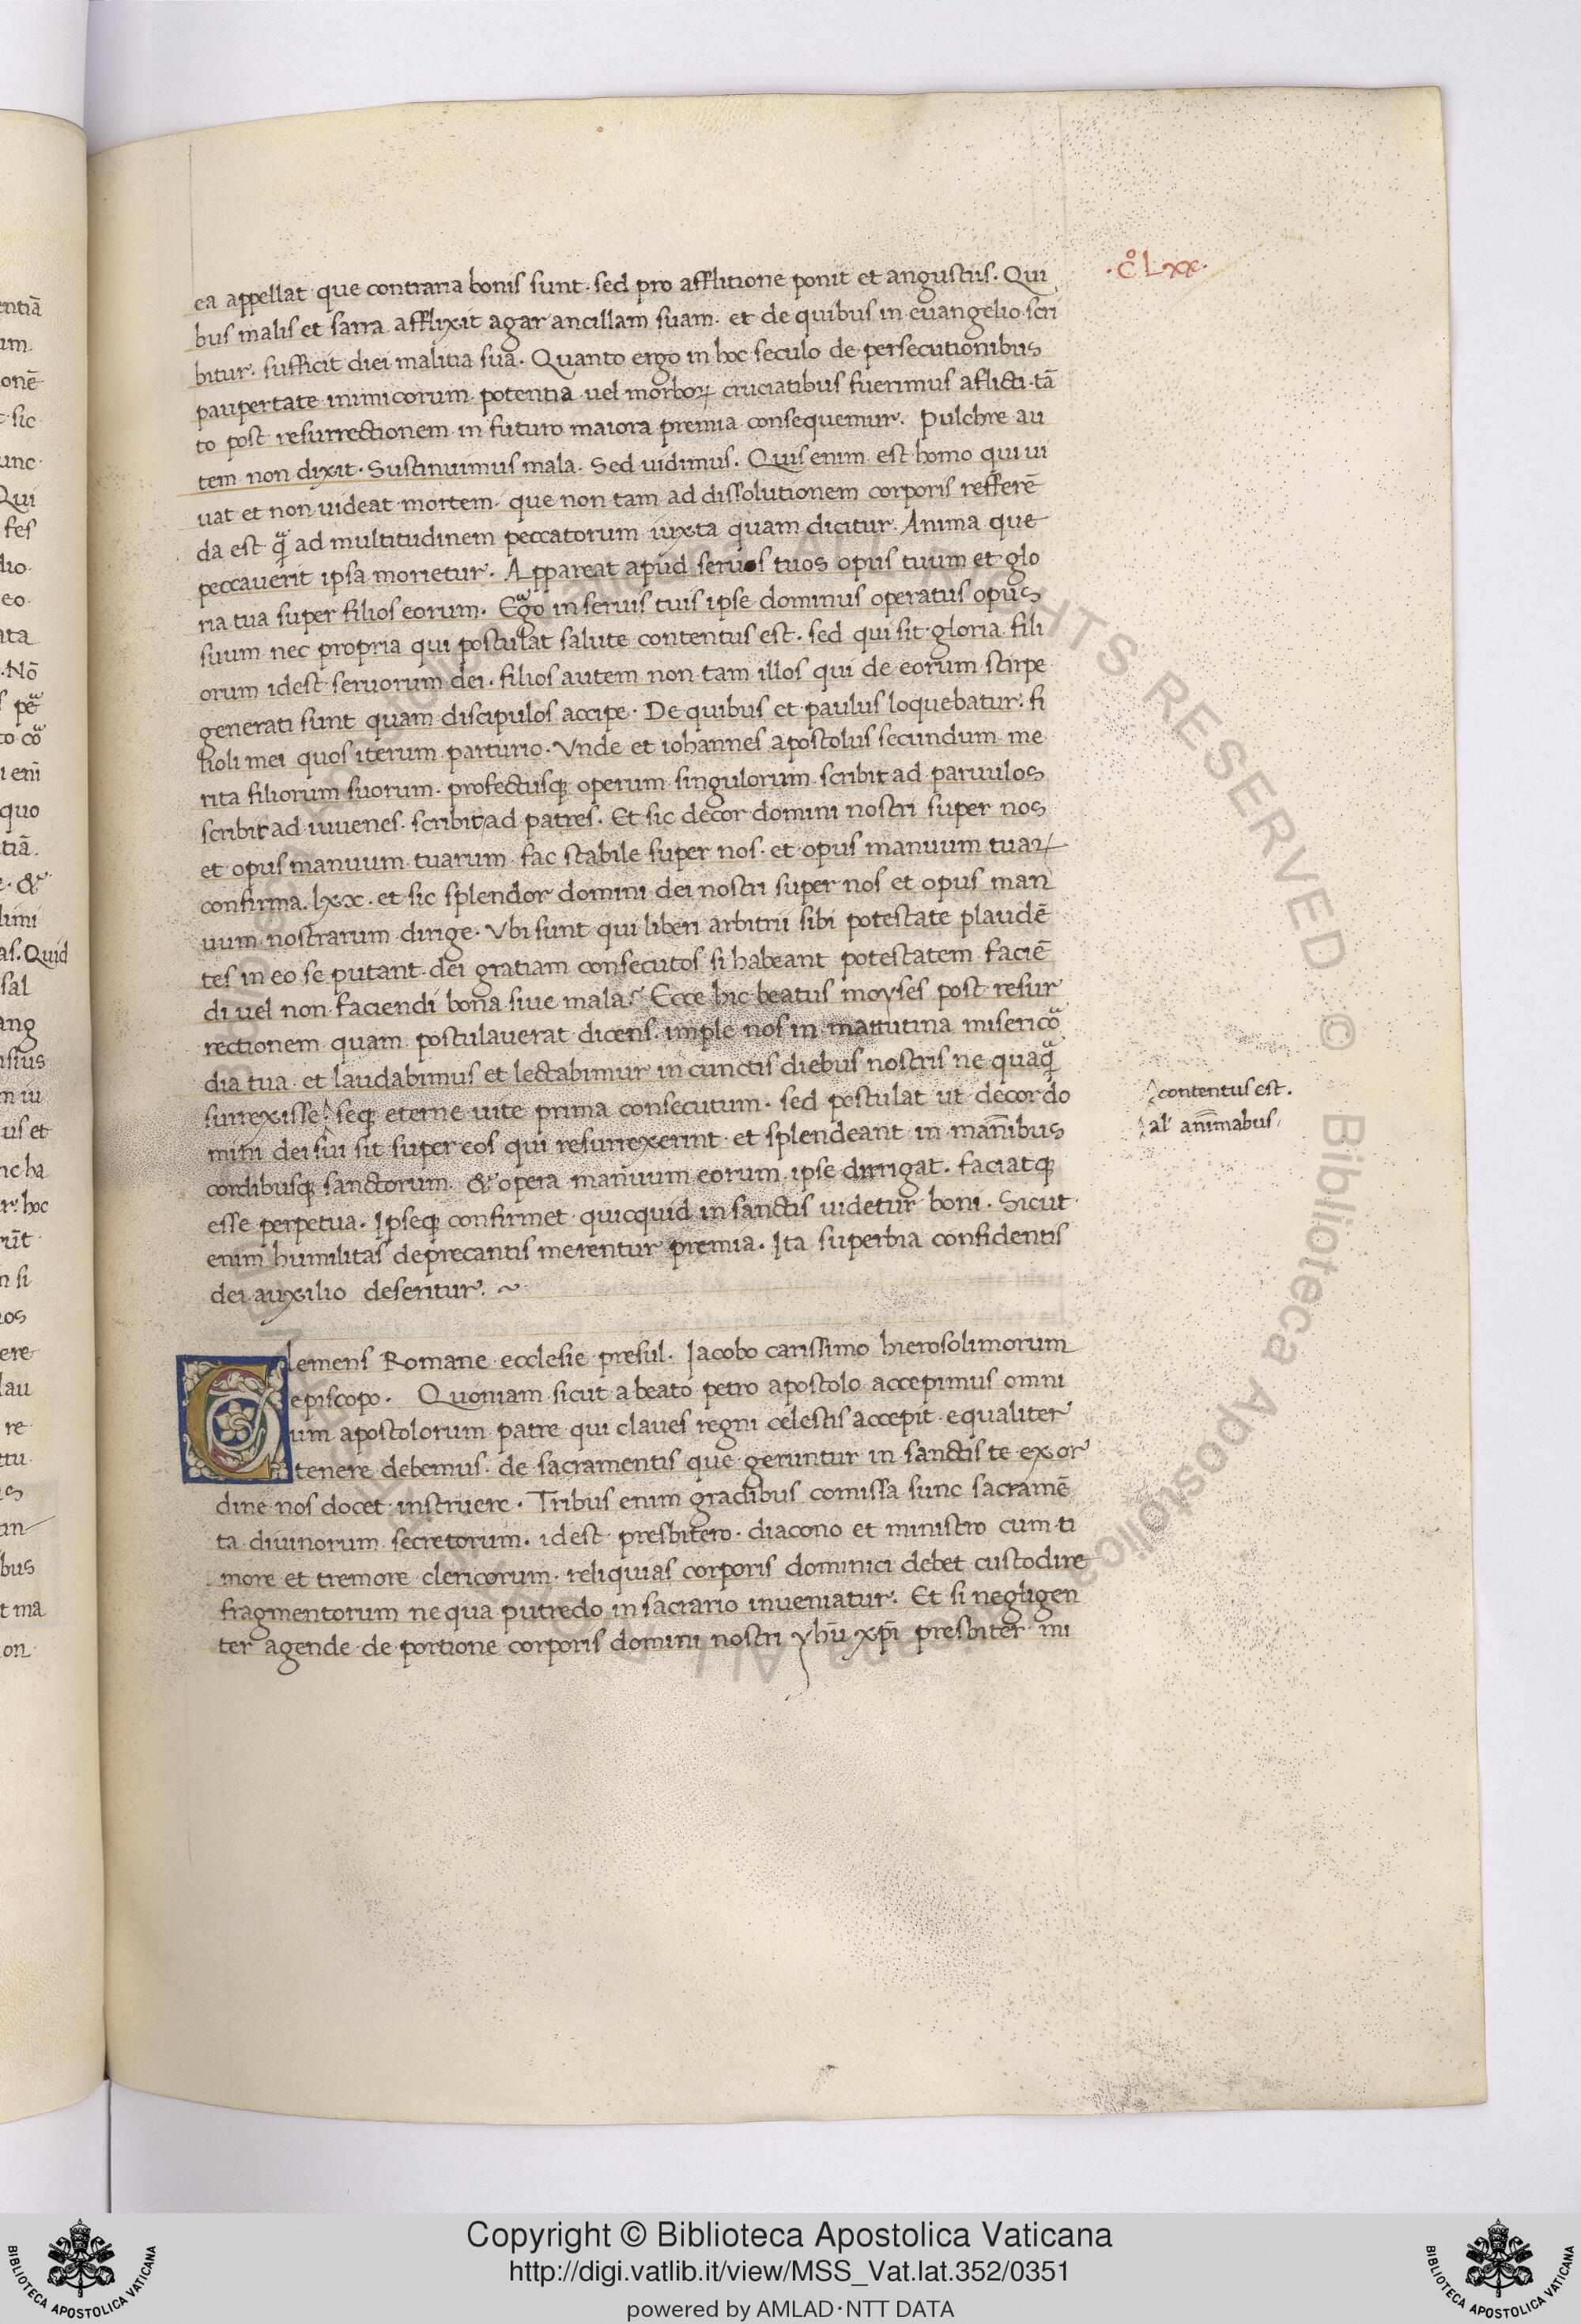 .c̊ Lxx.
ea appellat que contraria bonis sunt. sed pro afflitione ponit et angustiis. Qui
bus malis et sarra afflixit agar ancillam suam. et de quibus in euangelio scri
bitur. sufficit diei malitia sua. Quanto ergo in hoc seculo de persecutionibus
paupertate inimicorum potentia uel morboꝝ cruciatibus fuerimus aflicti tā
to post resurrectionem in futuro maiora premia consequemur. Pulchre au
tem non dixit. Sustinuimus mala. Sed uidimus. Quis enim est homo qui ui
uat et non uideat mortem. que non tam ad dissolutionem corporis refferē
da est q̃ ad multitudinem peccatorum iuxta quam dicitur. Anima que
peccauerit ipsa morietur. Appareat apud seruos tuos opus tuum et glo
ria tua super filios eorum. Eg̃o in seruis tuis ipse dominus operatus opus
suum nec propria qui postulat salute contentus est. sed qui sit gloria fili
orum idest seruorum dei. filios autem non tam illos qui de eorum stirpe
generati sunt quam discipulos accipe. De quibus et paulus loquebatur. fi
lioli mei quos iterum parturio. Vnde et iohannes apostolus secundum me
rita filiorum suorum. profectusq operum singulorum scribit ad paruulos
scribit ad iuuenes. scribit ad patres. Et sic decor domini nostri super nos
et opus manuum tuarum fac stabile super nos. et opus manuum tuaꝝ
confirma. lxx. et sic splendor domini dei nostri super nos et opus man
uum nostrarum dirige. Vbi sunt qui liberi arbitrii sibi potestate plaudē
tes in eo se putant dei gratiam consecutos si habeant potestatem faciē
di uel non faciendi bona siue mala. Ecce hic beatus moyses post resur
rectionem quam postulauerat dicens. imple nos in matutina misericõ
dia tua et laudabimus et lectabimur in cunctis diebus nostris ne quaq̃
surrexisse seq eterne uite prima consecutum. sed postulat ut decor do
mini dei sui sit super eos qui resurrexerint et splendeant in man̄ibus
cordibusq sanctorum & opera manuum eorum ipse dirrigat. faciatq
esse perpetua. Ipseq confirmet quicquid in sanctis uidetur boni. Sicut
enim humilitas deprecantis merentur premia. Ita superbia confidentis
dei auxilio deseritur. ~
contentus est.
al' anīmabus
Clemens Romane ecclesie presul. Jacobo carissimo hierosolimorum
episcopo. Quoniam sicut a beato petro apostolo accepimus omni
um apostolorum patre qui claues regni celestis accepit equaliter
tenere debemus de sacramentis que geruntur in sanctis te ex or
dine nos docet instruere. Tribus enim gradibus comissa sunc sacramē
ta diuinorum secretorum. idest presbitero. diacono et ministro cum ti
more et tremore clericorum reliquias corporis dominici debet custodire
fragmentorum ne qua putredo in sacrario inueniatur. Et si negligen
ter agende de portione corporis domini nostri yhū xp̄i presbiter mi
Copyright © Biblioteca Apostolica Vaticana
http://digi.vatlib.it/view/MSS_Vat.lat.352/0351
powered by AMLAD·NTT DATA